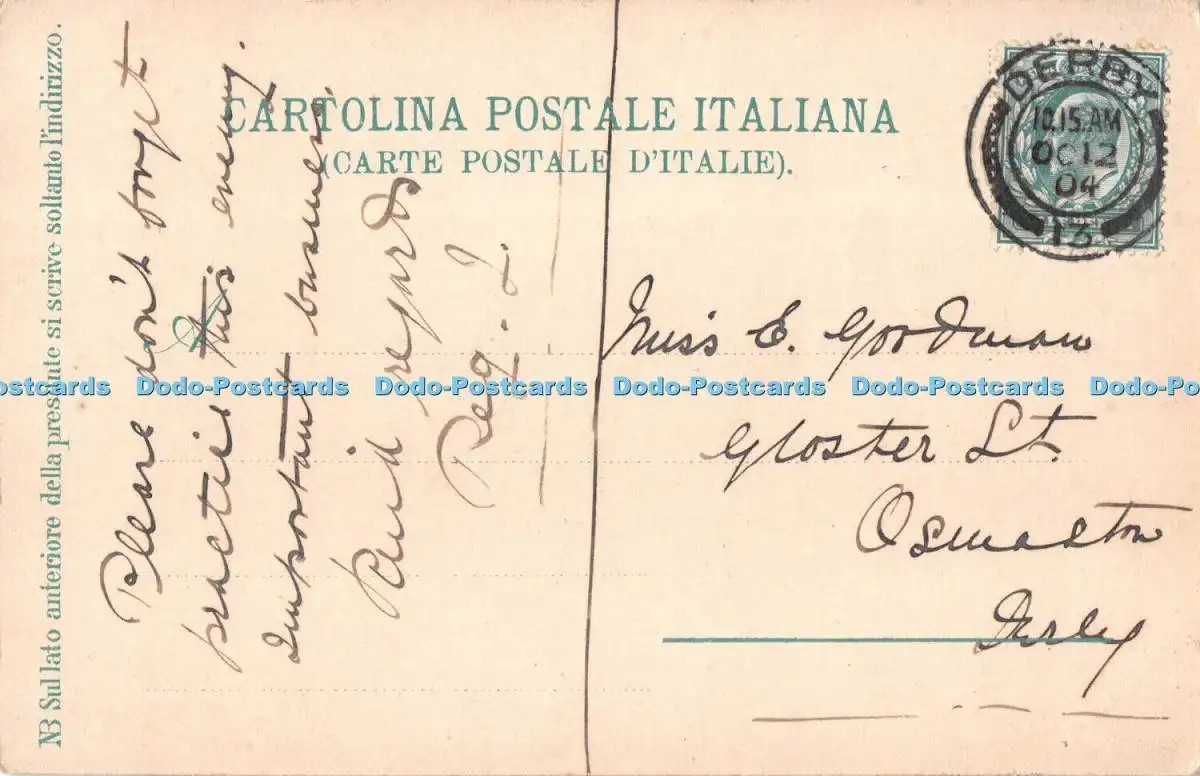 CARTOLINA POSTALE ITALIANA
(CARTE POSTALE D'ITALIE).
NB Sul lato anteriore della presente si scrive soltanto l'indirizzo.
DERBY
10.15.AM
OC 12
04
13
Please don't forget
practise this eveng.
Important business.
Kind regards
Reg. L.
Miss E. Goodman
Gloster St.
Osmaston
Derby
Dodo-Postcards Dodo-Postcards Dodo-Postcards Dodo-Postcards Dodo-Postcards Dodo-Postcards